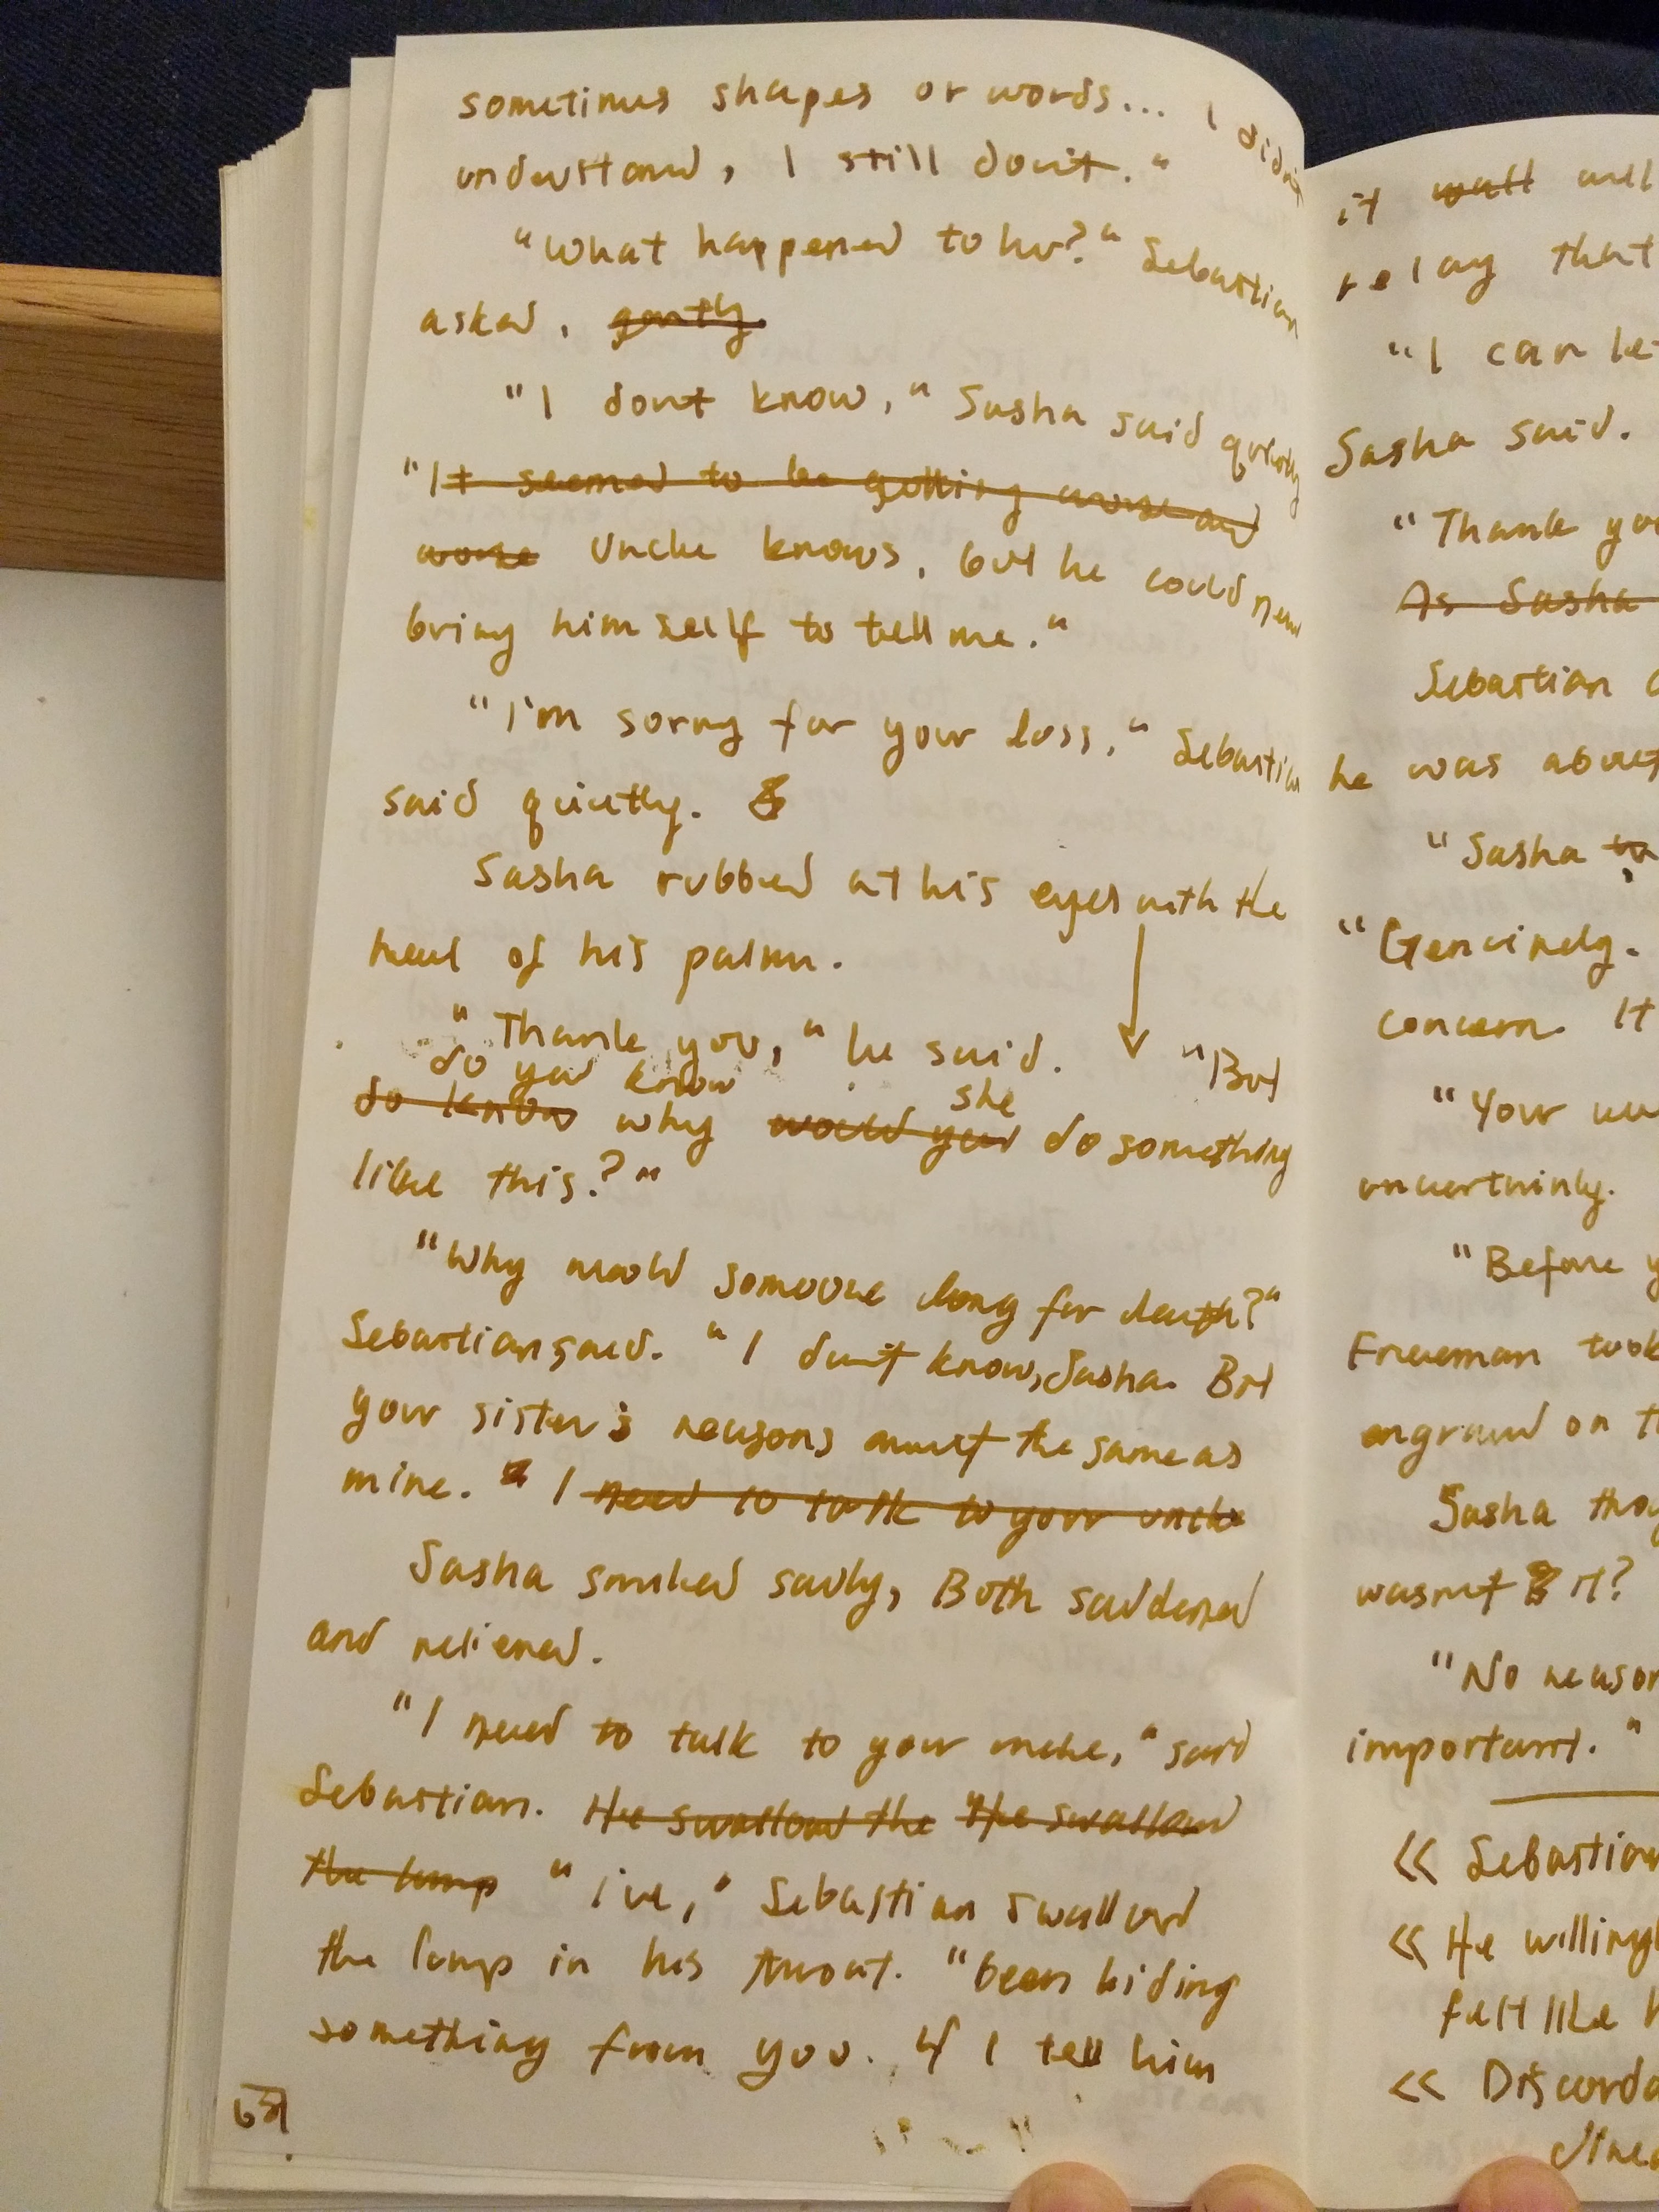 sometimes shapes or words... I didn't
understand, I still don't."
"What happened to her?" Sebastian
asked, gently.
"I don't know," Sasha said quietly
"It seemed to be getting worse and
worse Uncle knows, but he could never
bring himself to tell me."
"I'm sorry for your loss," Sebastian
said quietly.
Sasha rubbed at his eyes with the
heel of his palm.
"Thank you," he said. "But
do you know she
do know why would you do something
like this?"
"Why would someone long for death?"
Sebastian said. "I don't know, Sasha. But
your sister's reasons aren't the same as
mine." I need to talk to your uncle
Sasha smiled sadly, Both saddened
and relieved.
"I need to talk to your uncle," said
Sebastian. He swallowed the He swallowed
the lump "I've," Sebastian swallowed
the lump in his throat. "been hiding
something from you. If I tell him
it wall will
relay that
"I can let
Sasha said.
"Thank you
As Sasha
Sebastian
he was about
"Sasha
"Genuinely.
concern. It
"Your
uncertainly.
"Before y
Freeman took
engraved on t
Sasha thoug
wasn't it?
"No reason
important."
« Sebastian
« He willingl
felt like h
« Discorda